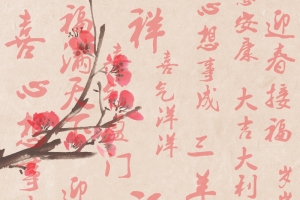 迎春接福
岁岁
恩安康
大吉大利
心想事成
三羊
祥
喜气洋洋
福满天
门
迎
喜
心想事